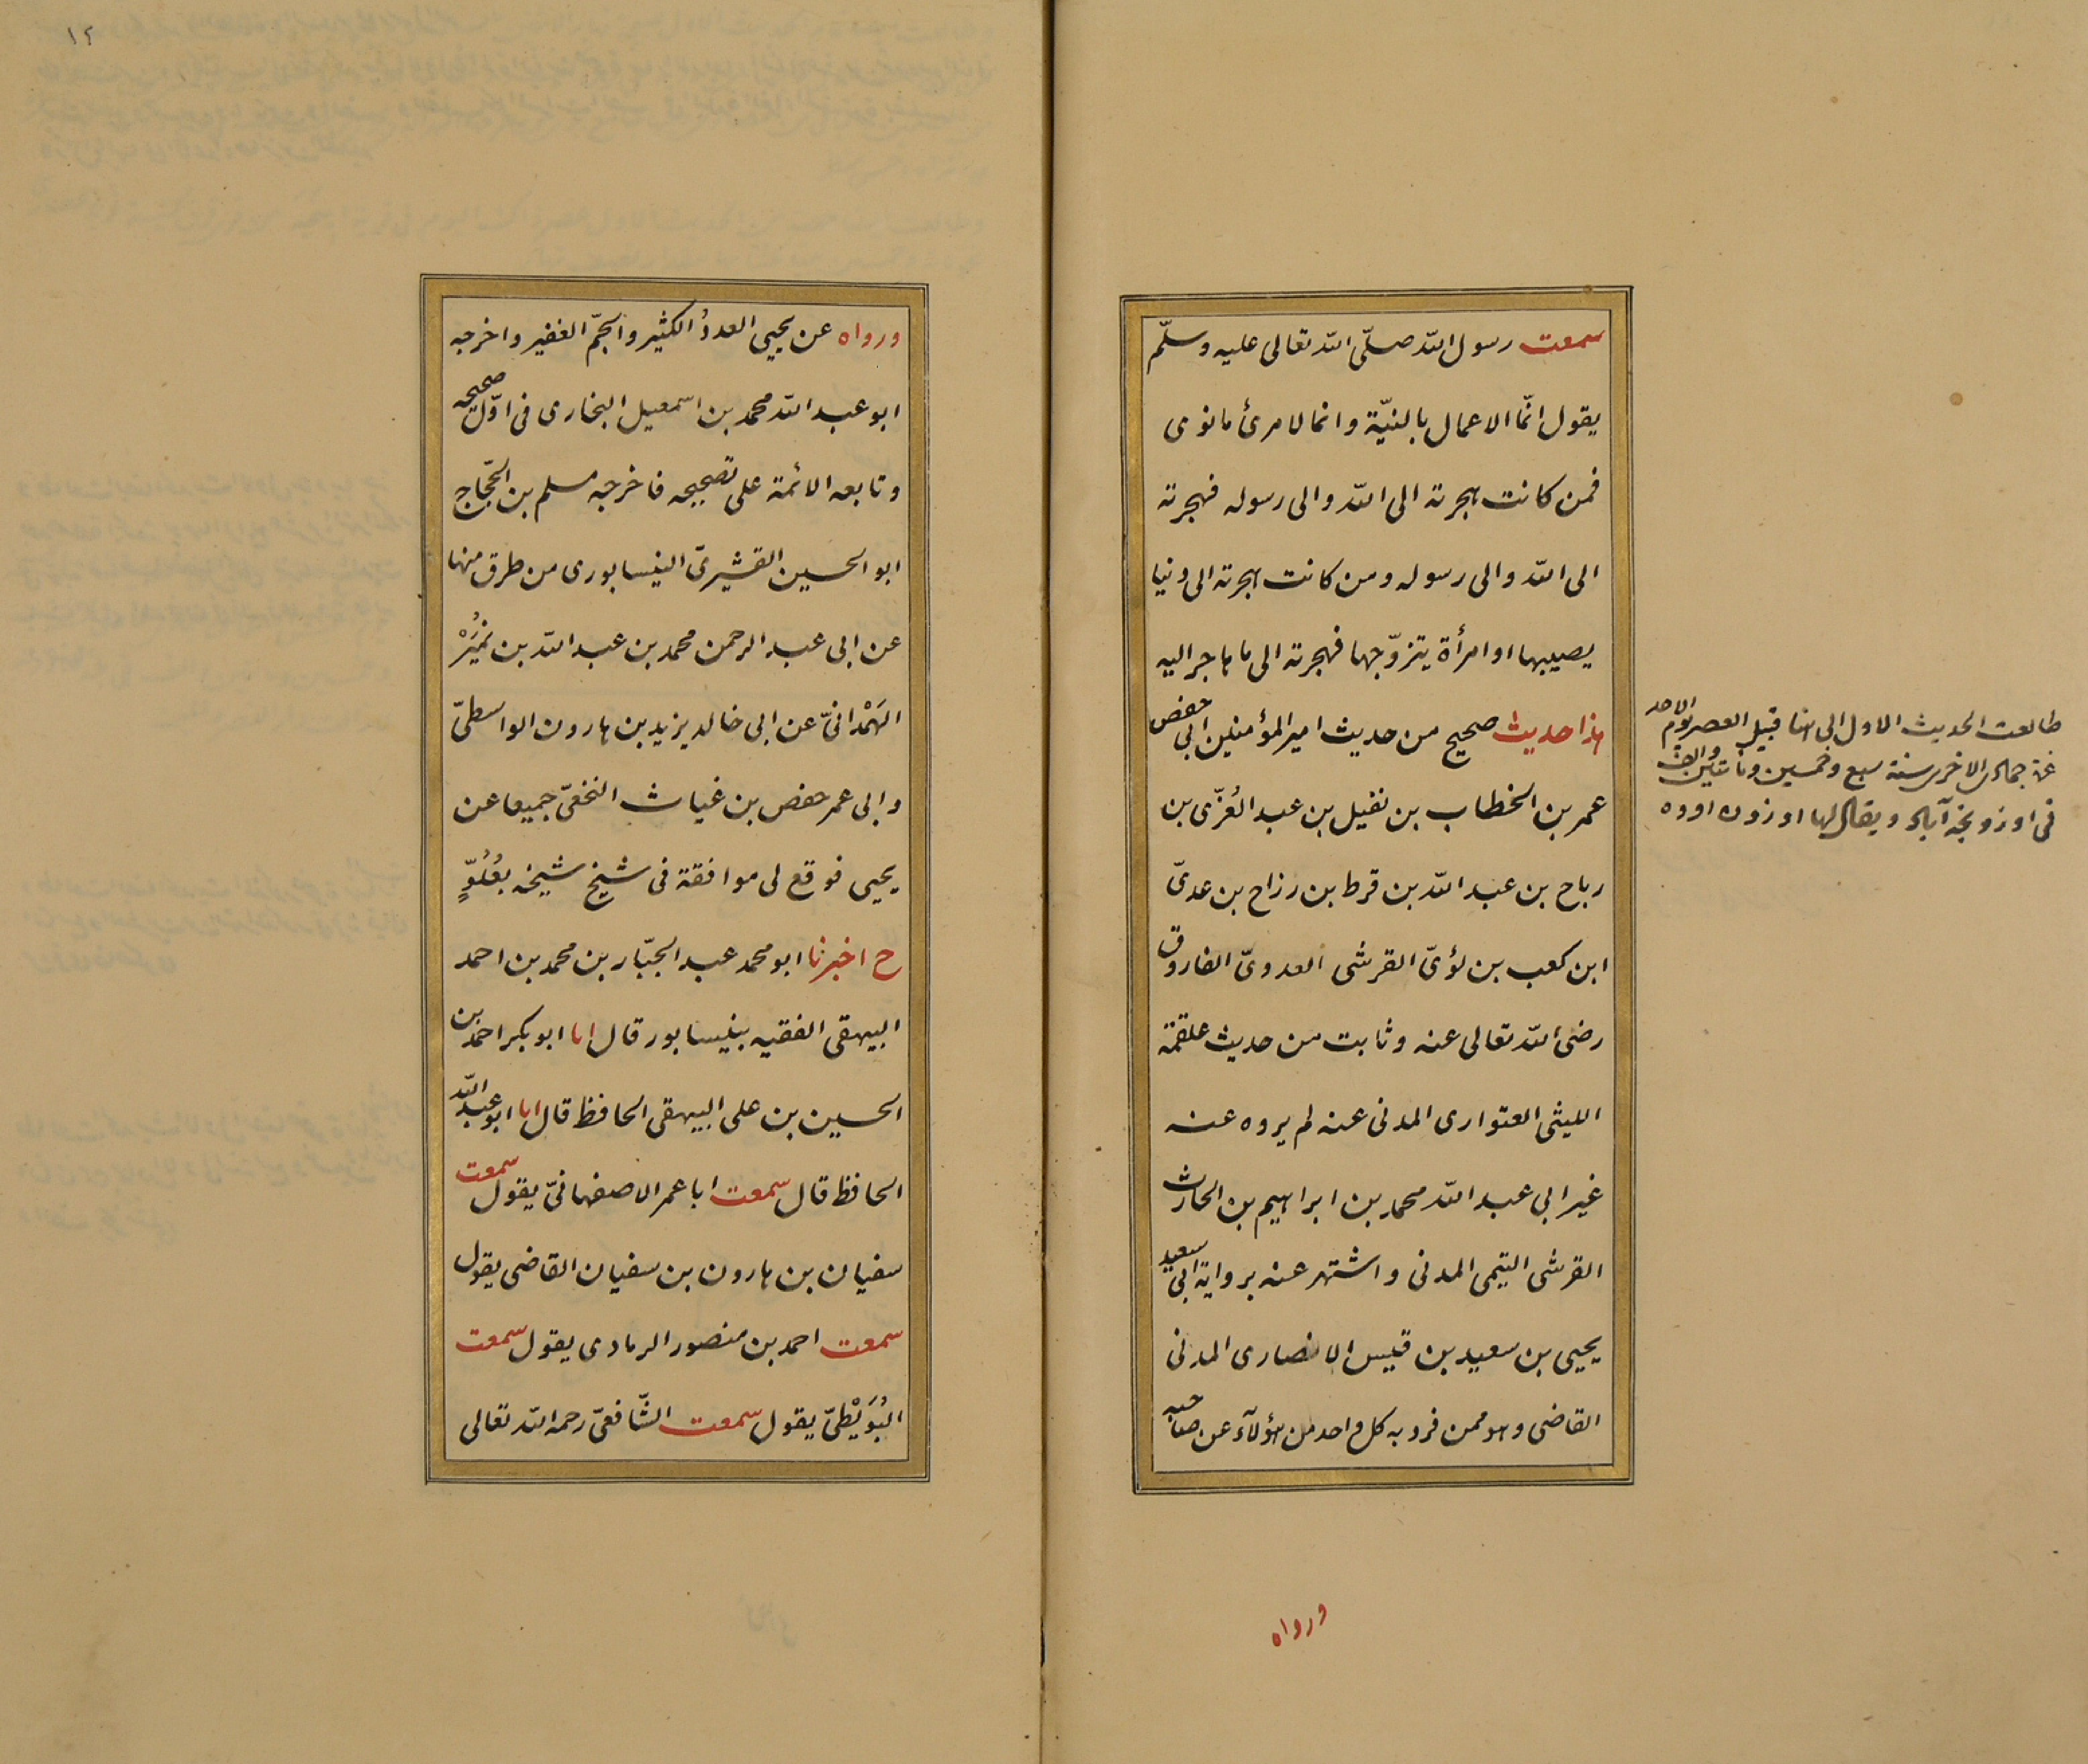 سمعت رسول الله صلّى الله تعالى عليه وسلّم
يقول انّما الاعمال بالنيّة وانما لامرئ مانوى
فمن كانت هجرته الى الله والى رسوله فهجرته
الى الله والى رسوله ومن كانت هجرته الى دنيا
يصيبها او امرأة يتزوّجها فهجرته الى ما هاجر اليه
هذا حديث صحيح من حديث امير المؤمنين ابى حفص
عمر بن الخطاب بن نفيل بن عبد العُزّى بن
رباح بن عبد الله بن قرط بن رزاح بن عدىّ
ابن كعب بن لؤىّ القرشى العدوىّ الفاروق
رضى الله تعالى عنه وثابت من حديث علقمة
الليثى العتوارى المدنى عنه لم يروه عنه
غير ابى عبد الله محمد بن ابراهيم بن الحارث
القرشى التيمى المدنى واشتهر عنه برواية ابى سعيد
يحيى بن سعيد بن قيس الانصارى المدنى
القاضى وهو ممن فرد به كل واحد من هؤلآء عن صاحبه
ورواه
طالعت الحديث الاول الى هنا قبيل العصر يوم الاحد
غرة جمادى الاخرى سنة سبع وخمسين ومأتين والف
فى اوزونجه آباد ويقال لها اوزون اووه
١٢
ورواه عن يحيى العددُ الكثير والجمّ الغفير واخرجه
ابو عبد الله محمد بن اسمعيل البخارى فى اوّل صحيحه
وتابعه الائمة على تصحيحه فاخرجه مسلم بن الحجّاج
ابو الحسين القشيرىّ النيسابورى من طرق منها
عن ابى عبد الرحمن محمد بن عبد الله بن نُمَيْر
الهَمْدانىّ عن ابى خالد يزيد بن هارون الواسطىّ
وابى عمر حفص بن غياث النخعىّ جميعا عن
يحيى فوقع لى موافقة فى شيخ شيخه بعُلُوٍّ
ح اخبرنا ابو محمد عبد الجبّار بن محمد بن احمد
البيهقى الفقيه بنيسابور قال انا ابو بكر احمد بن
الحسين بن على البيهقى الحافظ قال انا ابو عبد الله
الحافظ قال سمعت ابا عمر الاصفهانىّ يقول سمعت
سفيان بن هارون بن سفيان القاضى يقول
سمعت احمد بن منصور الرمادى يقول سمعت
البُوَيْطىّ يقول سمعت الشّافعىّ رحمه الله تعالى